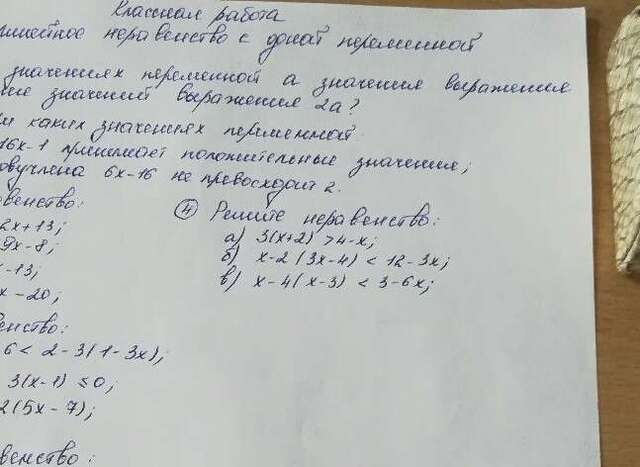 Классная работа
линейное неравенство с одной переменной
значениях переменной а значения выражения
значений выражения 2а?
каких значениях переменной
16x-1 принимает положительные значения;
двучлена 6x-16 не превосходит 2.
авенство:
2x+13;
9x-8;
-13;
x-20;
енство:
6 < 2-3(1-3x);
3(x-1) ≤0;
2(5x-7);
венство:
④ Решите неравенство:
а) 3(x+2) >4-x;
б) x-2(3x-4) < 12-3x;
в) x-4(x-3) < 3-6x;